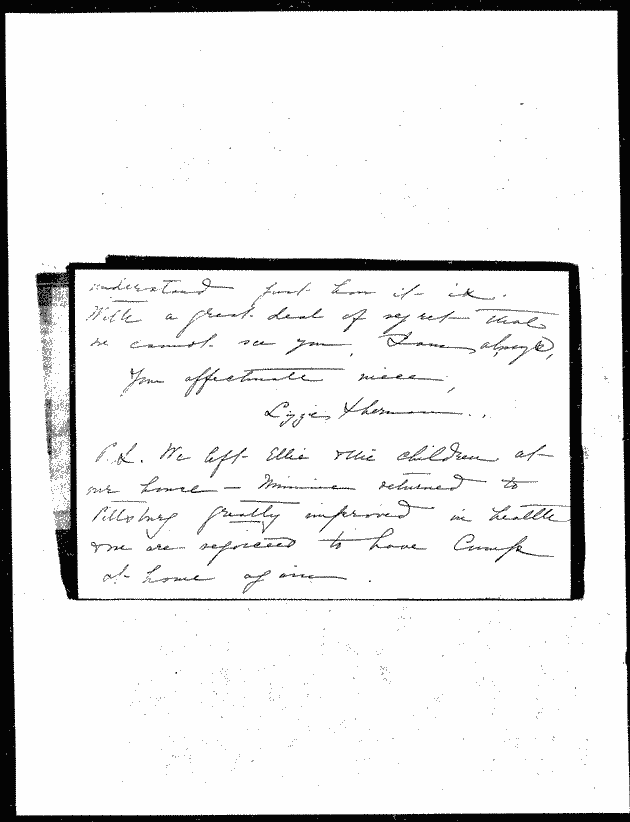 understand just how it is.
With a great deal of regret that
we cannot see you, I am, always,
Your affectionate niece,
Lizzie Sherman..
P.S. We left Ellie & the children at
our house – Minnie returned to
Pittsburg greatly improved in health
& we are rejoiced to have Cump
at home again.